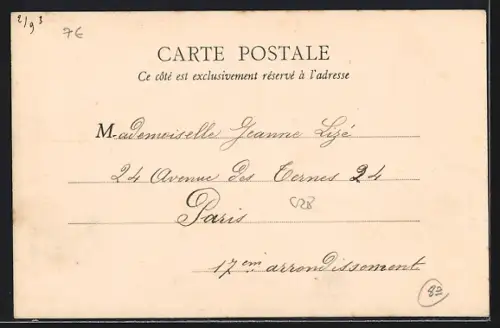 2/93
7€
CARTE POSTALE
Ce côté est exclusivement réservé à l'adresse
Mademoiselle Jeanne Lizé
24 Avenue des Ternes 24
Paris
17em arrondissement